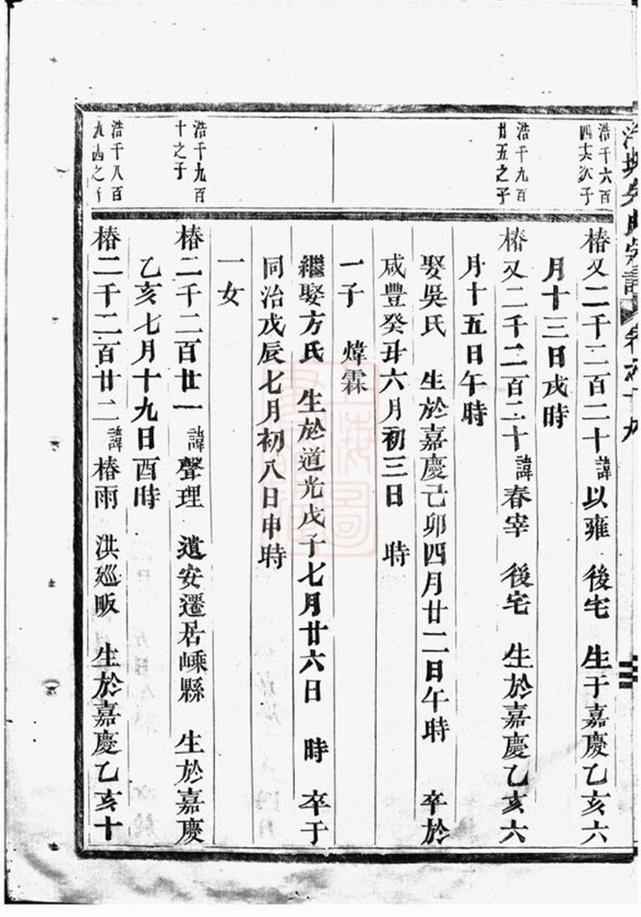 浩千六百
四十六次子
椿又二千二百二十 諱以雍 後宅 生于嘉慶乙亥六
月十三日戌時
浩千九百
廿五之子
椿又二千二百二十 諱春宰 後宅 生於嘉慶乙亥六
月十五日午時
娶吳氏 生於嘉慶己卯四月廿二日午時 卒於
咸豐癸丑六月初三日 時
一子 煒霖
繼娶方氏 生於道光戊子七月廿六日 時 卒于
同治戊辰七月初八日申時
一女
浩千九百
十之子
椿二千二百廿一 諱聲理 遺安遷居嵊縣 生於嘉慶
乙亥七月十九日酉時
浩千八百
九之子
椿二千二百廿二 諱椿雨 洪廵畈 生於嘉慶乙亥十